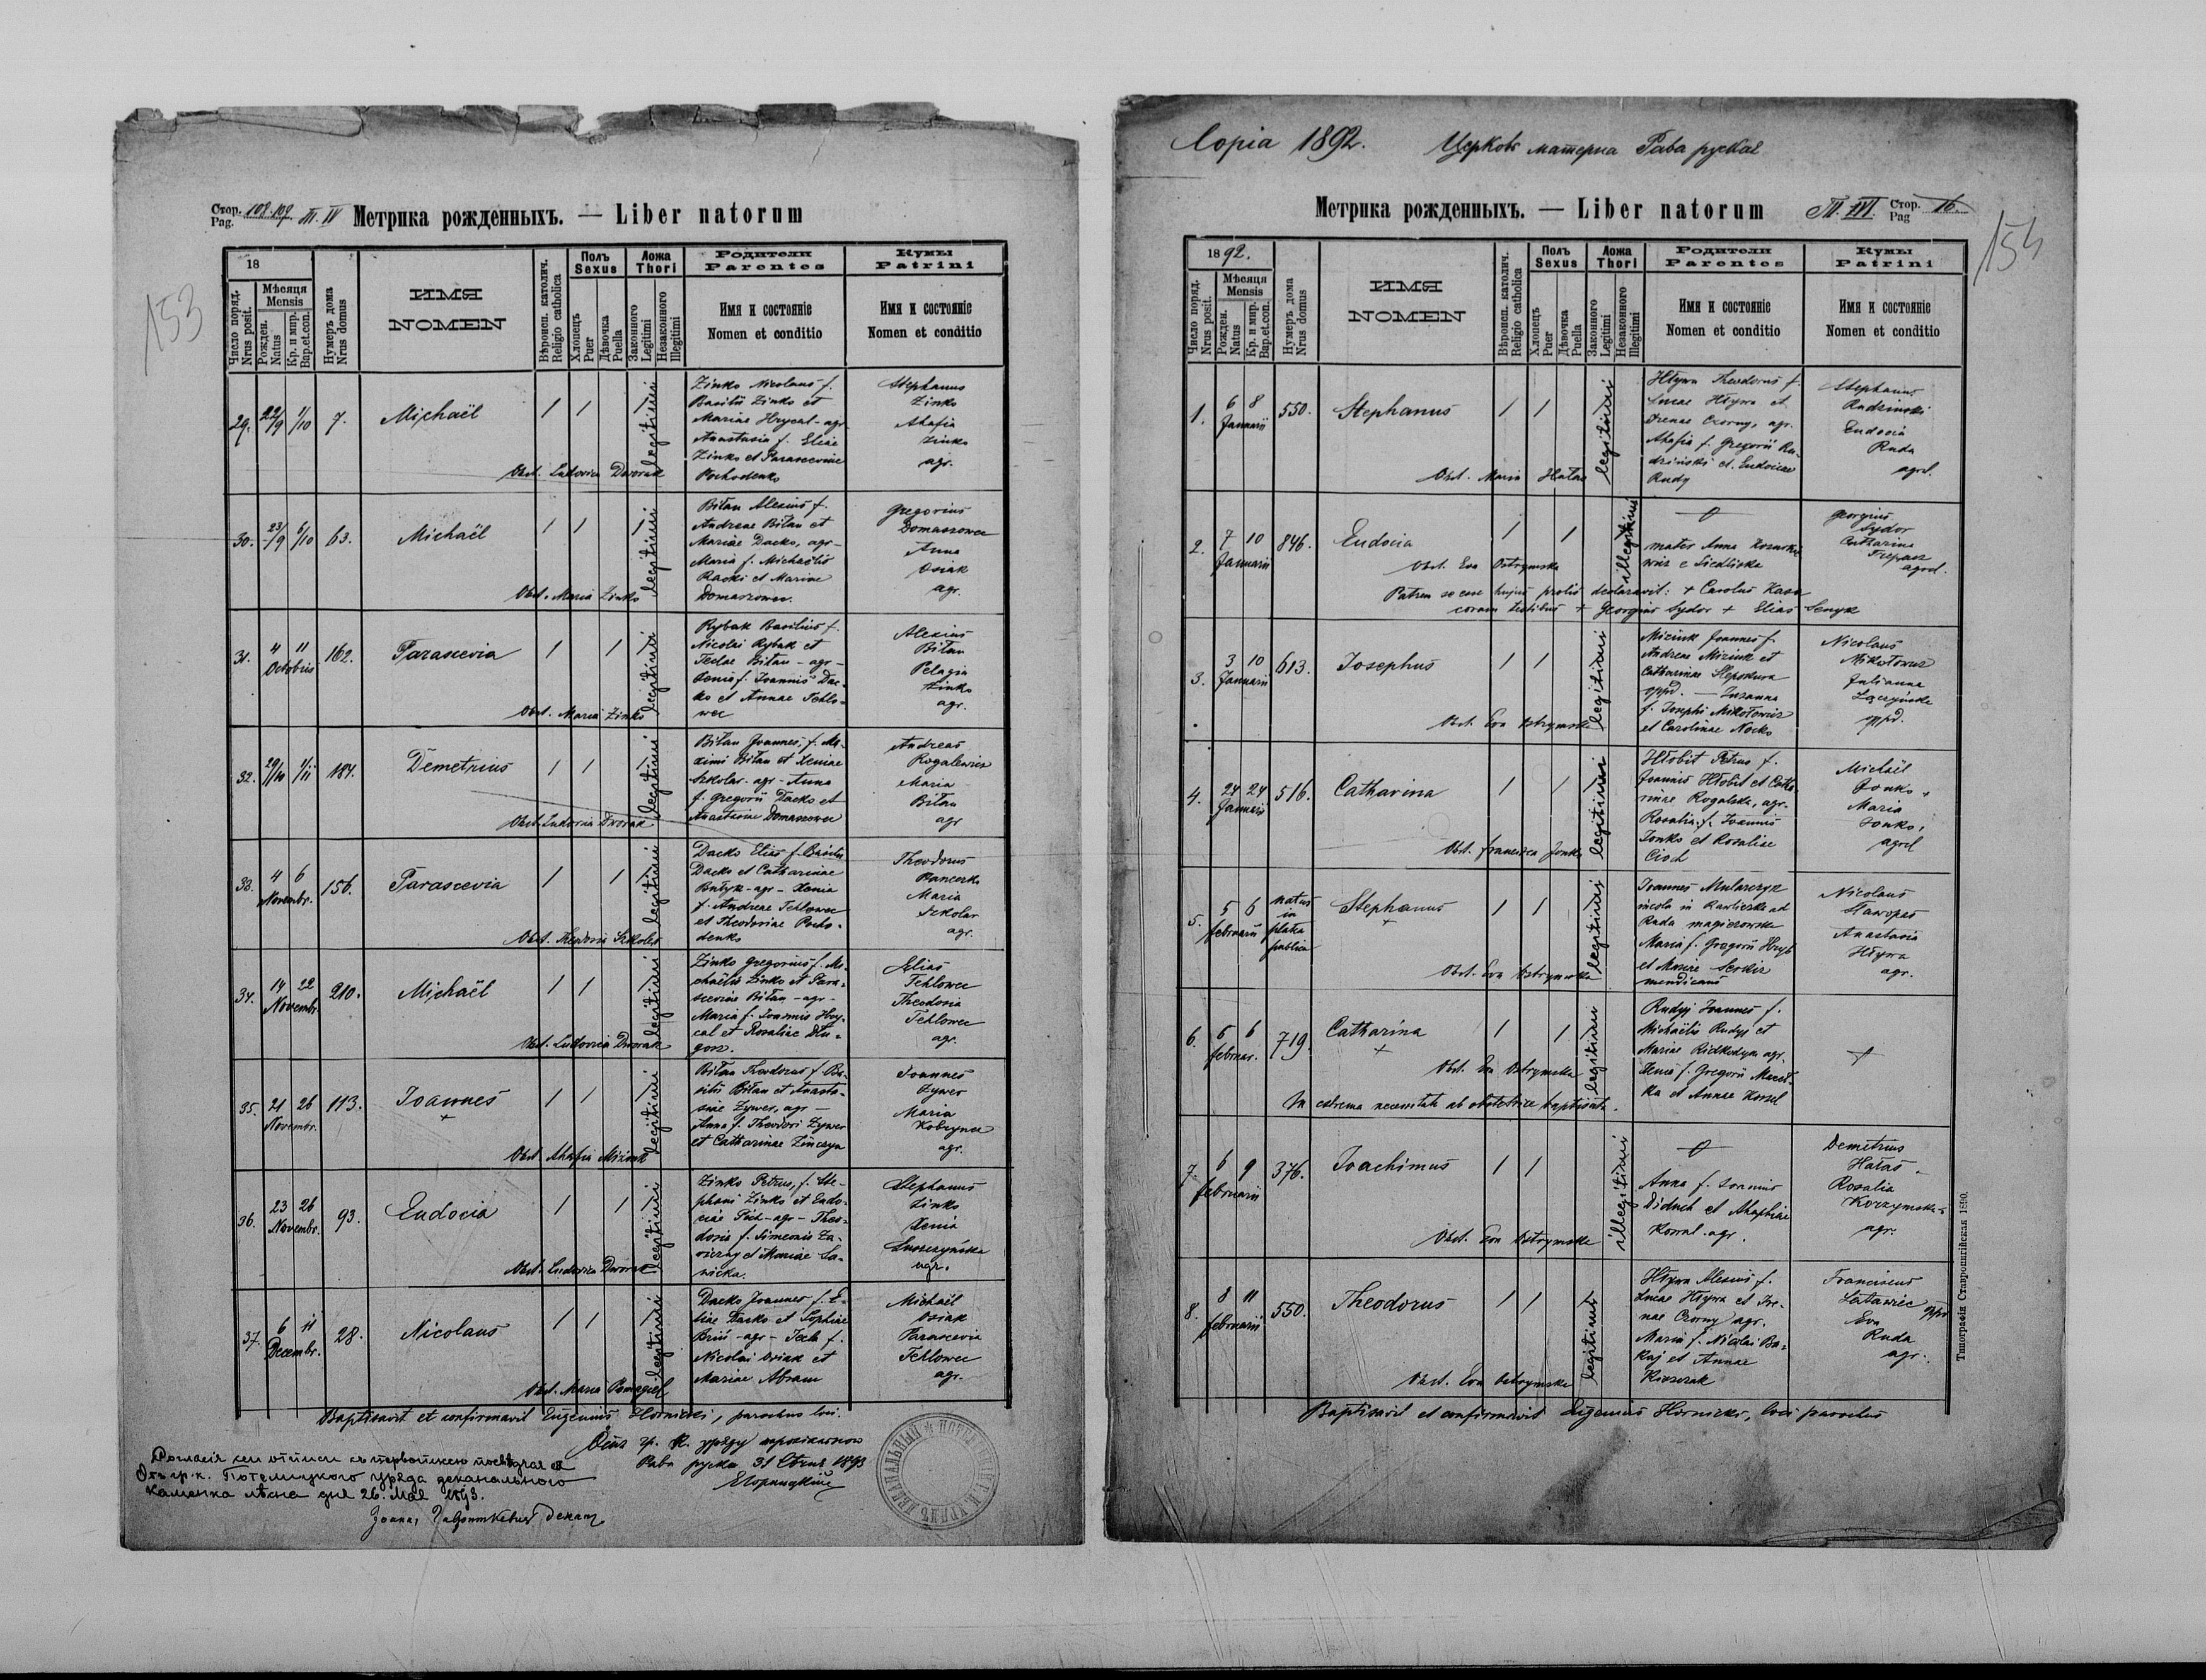 153
Стор. 108.109 III. IV Метрика рожденныхъ. — Liber natorum
Pag.
18
Число поряд. Nrus posit.
Мѣсяця Mensis
Рожден. Natus
Кр. и мир. Bap.et.con.
Нумеръ дома Nrus domus
ИМЯ
NOMEN
Вѣроисп. католич. Religio catholica
Полъ Sexus
Хлопецъ Puer
Дѣвочка Puella
Ложа Thori
Законного Legitimi
Незаконного Illegitimi
Родители Parentes
Имя и состояніе
Nomen et conditio
Кумы Patrini
Имя и состояніе
Nomen et conditio
29. 22/9 1/10 7. Michaël 1 1 1 legitimi
Zinko Nicolaus f.
Basilii Zinko et
Mariae Hrycal - agr
Anastasia f. Eliae
Zinko et Parasceviae
Pochodenko
Stephanus
Zinko
Ahafia
Zinko
agr.
Obst. Ludovica Dworak
30. 23/9 6/10 63. Michaël 1 1 1 legitimi
Biłan Alexius f.
Andreae Biłan et
Mariae Dacko, agr -
Maria f. Michaëlis
Racki et Mariae
Domaszowec.
Gregorius
Domaszowec
Anna
Osiak
agr.
Obst. Maria Zinko
31. 4 11 Octobris 162. Parascevia 1 1 1 legitimi
Rybak Basilius f.
Nicolai Rybak et
Teclae Biłan - agr -
Xenia f. Joannis Dac-
ko et Annae Tehlo-
wec
Alexius
Biłan
Pelagia
Zinko
agr.
Obst. Maria Zinko
32. 29/10 1/11 184. Demetrius 1 1 1 legitimi
Biłan Joannes, f. Ma-
ximi Biłan et Xeniae
Szkolar - agr - Anna
f. Gregorii Dacko et
Anastasiae Domaszowec
Andreas
Rogalewicz
Maria
Biłan
agr
Obst. Ludovica Dworak
33. 4 6 Novembr. 156. Parascevia 1 1 1 legitimi
Dacko Elias f. Basilii
Dacko et Catharinae
- agr - Xenia
f. Andreae Tehlowec
et Theodoriae Pocho-
denko
Theodorus
Maria
Szkolar
agr.
Obst. Theodoria Szkolar
34. 14 22 Novembr. 210. Michaël 1 1 1 legitimi
Zinko Gregorius f. Mi-
chaëlis Zinko et Para-
sceviae Biłan - agr -
Maria f. Joannis Hry-
cal et Rosaliae Dłu-
gosz.
Elias
Tehlowec
Theodosia
Tehlowec
agr.
Obst. Ludovica Dworak
35. 21 26 Novembr. 113. Joannes + 1 1 1 legitimi
Biłan Theodorus f. Ba-
silii Biłan et Anasta-
siae Zywer, agr -
Anna f. Theodori Zywer
et Catharinae Zinczyn
Joannes
Zywer
Maria
Kobrynec
agr.
Obst. Ahafia Miziuk
36. 23 26 Novembr. 93. Eudocia 1 1 1 legitimi
Zinko Petrus, f. Ste-
phani Zinko et Eudo-
ciae - agr - Theo-
doria f. Simeonis Za-
et Mariae Sa-
wicka.
Stephanus
Zinko
Xenia
agr.
Obst. Ludovica Dworak
37. 6 11 Decembr. 28. Nicolaus 1 1 1 legitimi
Dacko Joannes f. E-
liae Dacko et Sophiae
- agr - Tecla f.
Nicolai Osiak et
Mariae Abram
Michaël
Osiak
Parascevia
Tehlowec
agr.
Obst. Maria
Baptisavit et confirmavit Eugenius Hornicki, parochus loci.
гр. к. уряду
Рава руска 31 1893
Горницкій
сеи отписи съ
Отъ гр. к. Потелицкого уряда деканального
Каменка лѣсна дня 26. Мая 1893.
декан
Copia 1892. Церковь матерна Рава руская
154
Метрика рожденныхъ. — Liber natorum III. Стор. 16.
Pag
1892.
Число поряд. Nrus posit.
Мѣсяця Mensis
Рожден. Natus
Кр. и мир. Bap.et.con.
Нумеръ дома Nrus domus
ИМЯ
NOMEN
Вѣроисп. католич. Religio catholica
Полъ Sexus
Хлопецъ Puer
Дѣвочка Puella
Ложа Thori
Законного Legitimi
Незаконного Illegitimi
Родители Parentes
Имя и состояніе
Nomen et conditio
Кумы Patrini
Имя и состояніе
Nomen et conditio
1. 6 8 Januarii 550. Stephanus 1 1 legitimi
Hływa Theodorus f.
Lucae Hływa et
Irenae Czorny, agr.
Ahafia f. Gregorii Ru-
dziński et Eudociae
Rudy
Stephanus
Rudzinski
Eudocia
Ruda
agrl.
Obst. Maria Hałas
2. 7 10 Januarii 846. Eudocia 1 1 illegitimi
mater Anna
e Siedliska
Georgius
Sydor
Catharina
agrl.
Obst. Eva Ostrymska
Patrem se esse hujus prolis declaravit: + Carolus
coram testibus + Georgius Sydor + Elias Senyk
3. 3 10 Januarii 613. Josephus 1 1 legitimi
Miziuk Joannes f.
Andreae Miziuk et
Catharinae
oppd. - Susanna
f. Josephi Mikołowicz
et Carolinae Nocko
Nicolaus
Mikołowicz
Julianna
Łączyńska
oppd.
Obst. Eva Ostrymska
4. 24 24 Januarii 516. Catharina 1 1 legitimi
Hłobit Petrus f.
Joannis Hłobit et Catha-
rinae Rogalska, agr.
Rosalia, f. Joannis
Jonko et Rosaliae
Cioch
Michaël
Jonko,
Maria
Jonko,
agrl
Obst. Francisca Jonko
5. 5 6 februarii natus in platea publica Stephanus + 1 1 legitimi
Joannes Mularczyk
incola in ad
Rada magierowska
Maria f. Gregorii Hryb
et Mariae
mendicans
Nicolaus
Anastasia
Hływa
agr.
Obst. Eva Ostrymska
6. 5 6 februar. 719. Catharina + 1 1 legitimi
Rudyj Joannes f.
Michaëlis Rudyj et
Mariae agr.
Xenia f. Gregorii
et Annae
Obst. Eva Ostrymska
In extrema necessitate ab obstetrice baptisata.
7. 6 9 februarii 376. Joachimus 1 1 illegitimi
Anna f. Joannis
Diduch et Ahaphiae
Kowal - agr.
Demetrius
Hałas
Rosalia
Korzymska
agr.
Obst. Eva Ostrymska
8. 8 11 februarii 550. Theodorus 1 1 legitimi
Hływa Alexius f.
Lucae Hływa et Ire-
nae Czorny agr.
Maria f. Nicolai Ba-
kaj et Annae
Franciscus
Latawiec oppd
Eva
Ruda
agr.
Obst. Eva Ostrymska
Baptisavit et confirmavit Eugenius Hornicki, loci parochus
Типографія Ставропигійская 1890.